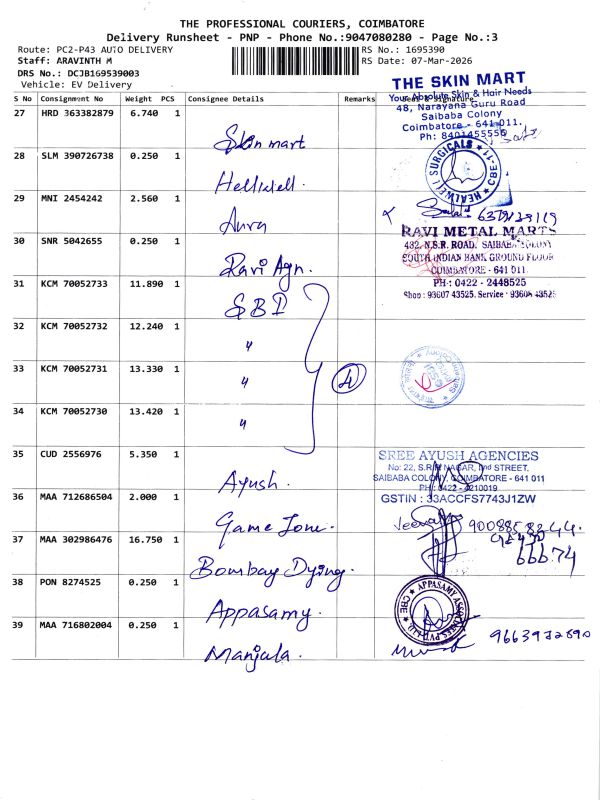 THE PROFESSIONAL COURIERS, COIMBATORE
Delivery Runsheet - PNP - Phone No.:9047080280 - Page No.:3
Route: PC2-P43 AUTO DELIVERY
RS No.: 1695390
Staff: ARAVINTH M
RS Date: 07-Mar-2026
DRS No.: DCJB169539003
Vehicle: EV Delivery
THE SKIN MART
Your Absolute Skin & Hair Needs
48, Narayana Guru Road
Saibaba Colony
Coimbatore - 641 011.
Ph: 8401455556
S No Consignment No Weight PCS Consignee Details Remarks
27 HRD 363382879 6.740 1
Skin mart
28 SLM 390726738 0.250 1
Helliwell.
HEALWELL SURGICALS CBE-11
29 MNI 2454242 2.560 1
Aura
RAVI METAL MARTS
482, N.S.R. ROAD, SAIBABA COLONY
SOUTH INDIAN BANK GROUND FLOOR
COIMBATORE - 641 011.
PH-: 0422 - 2448525
Shop : 93607 43525. Service : 93608 43525
30 SNR 5042655 0.250 1
Ravi Agn.
31 KCM 70052733 11.890 1
SBI
32 KCM 70052732 12.240 1
"
33 KCM 70052731 13.330 1
"
4
34 KCM 70052730 13.420 1
"
35 CUD 2556976 5.350 1
Ayush.
SREE AYUSH AGENCIES
No: 22, S.R.P. NAGAR, IInd STREET,
SAIBABA COLONY, COIMBATORE - 641 011
PH: 0422 - 4210019
GSTIN : 33ACCFS7743J1ZW
36 MAA 712686504 2.000 1
Game Zone.
37 MAA 302986476 16.750 1
Bombay Dying.
66674
38 PON 8274525 0.250 1
Appasamy.
APPASAMY ASSOCIATES PVT. LTD. CBE
39 MAA 716802004 0.250 1
Manjula.